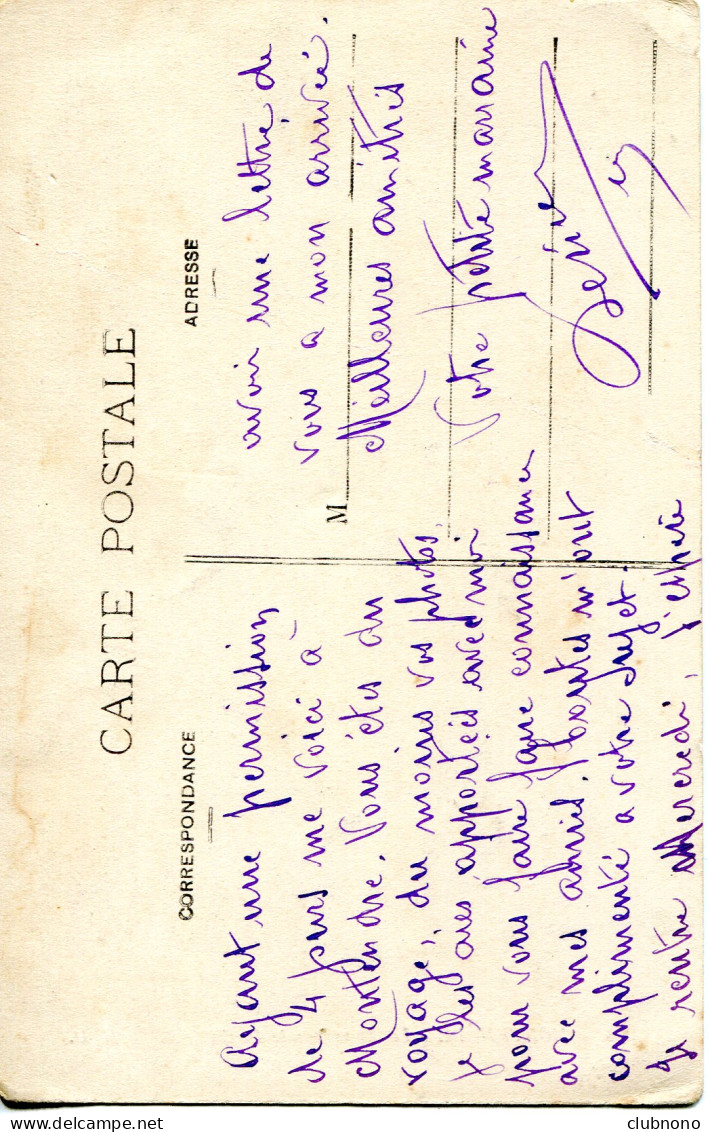 CARTE POSTALE
CORRESPONDANCE
Ayant une permission
de 4 jours me voici à
Montendre. Vous êtes du
voyage, du moins vos photos,
je les ais apportées avec moi
pour vous faire faire connaissance
avec mes amis. toutes m'ont
complimenté a votre sujet.
Je rentre Mercredi, j'espère
ADRESSE
avoir une lettre de
vous a mon arrivée.
M
Meilleures amitiés
Votre petite marraine
clubnono